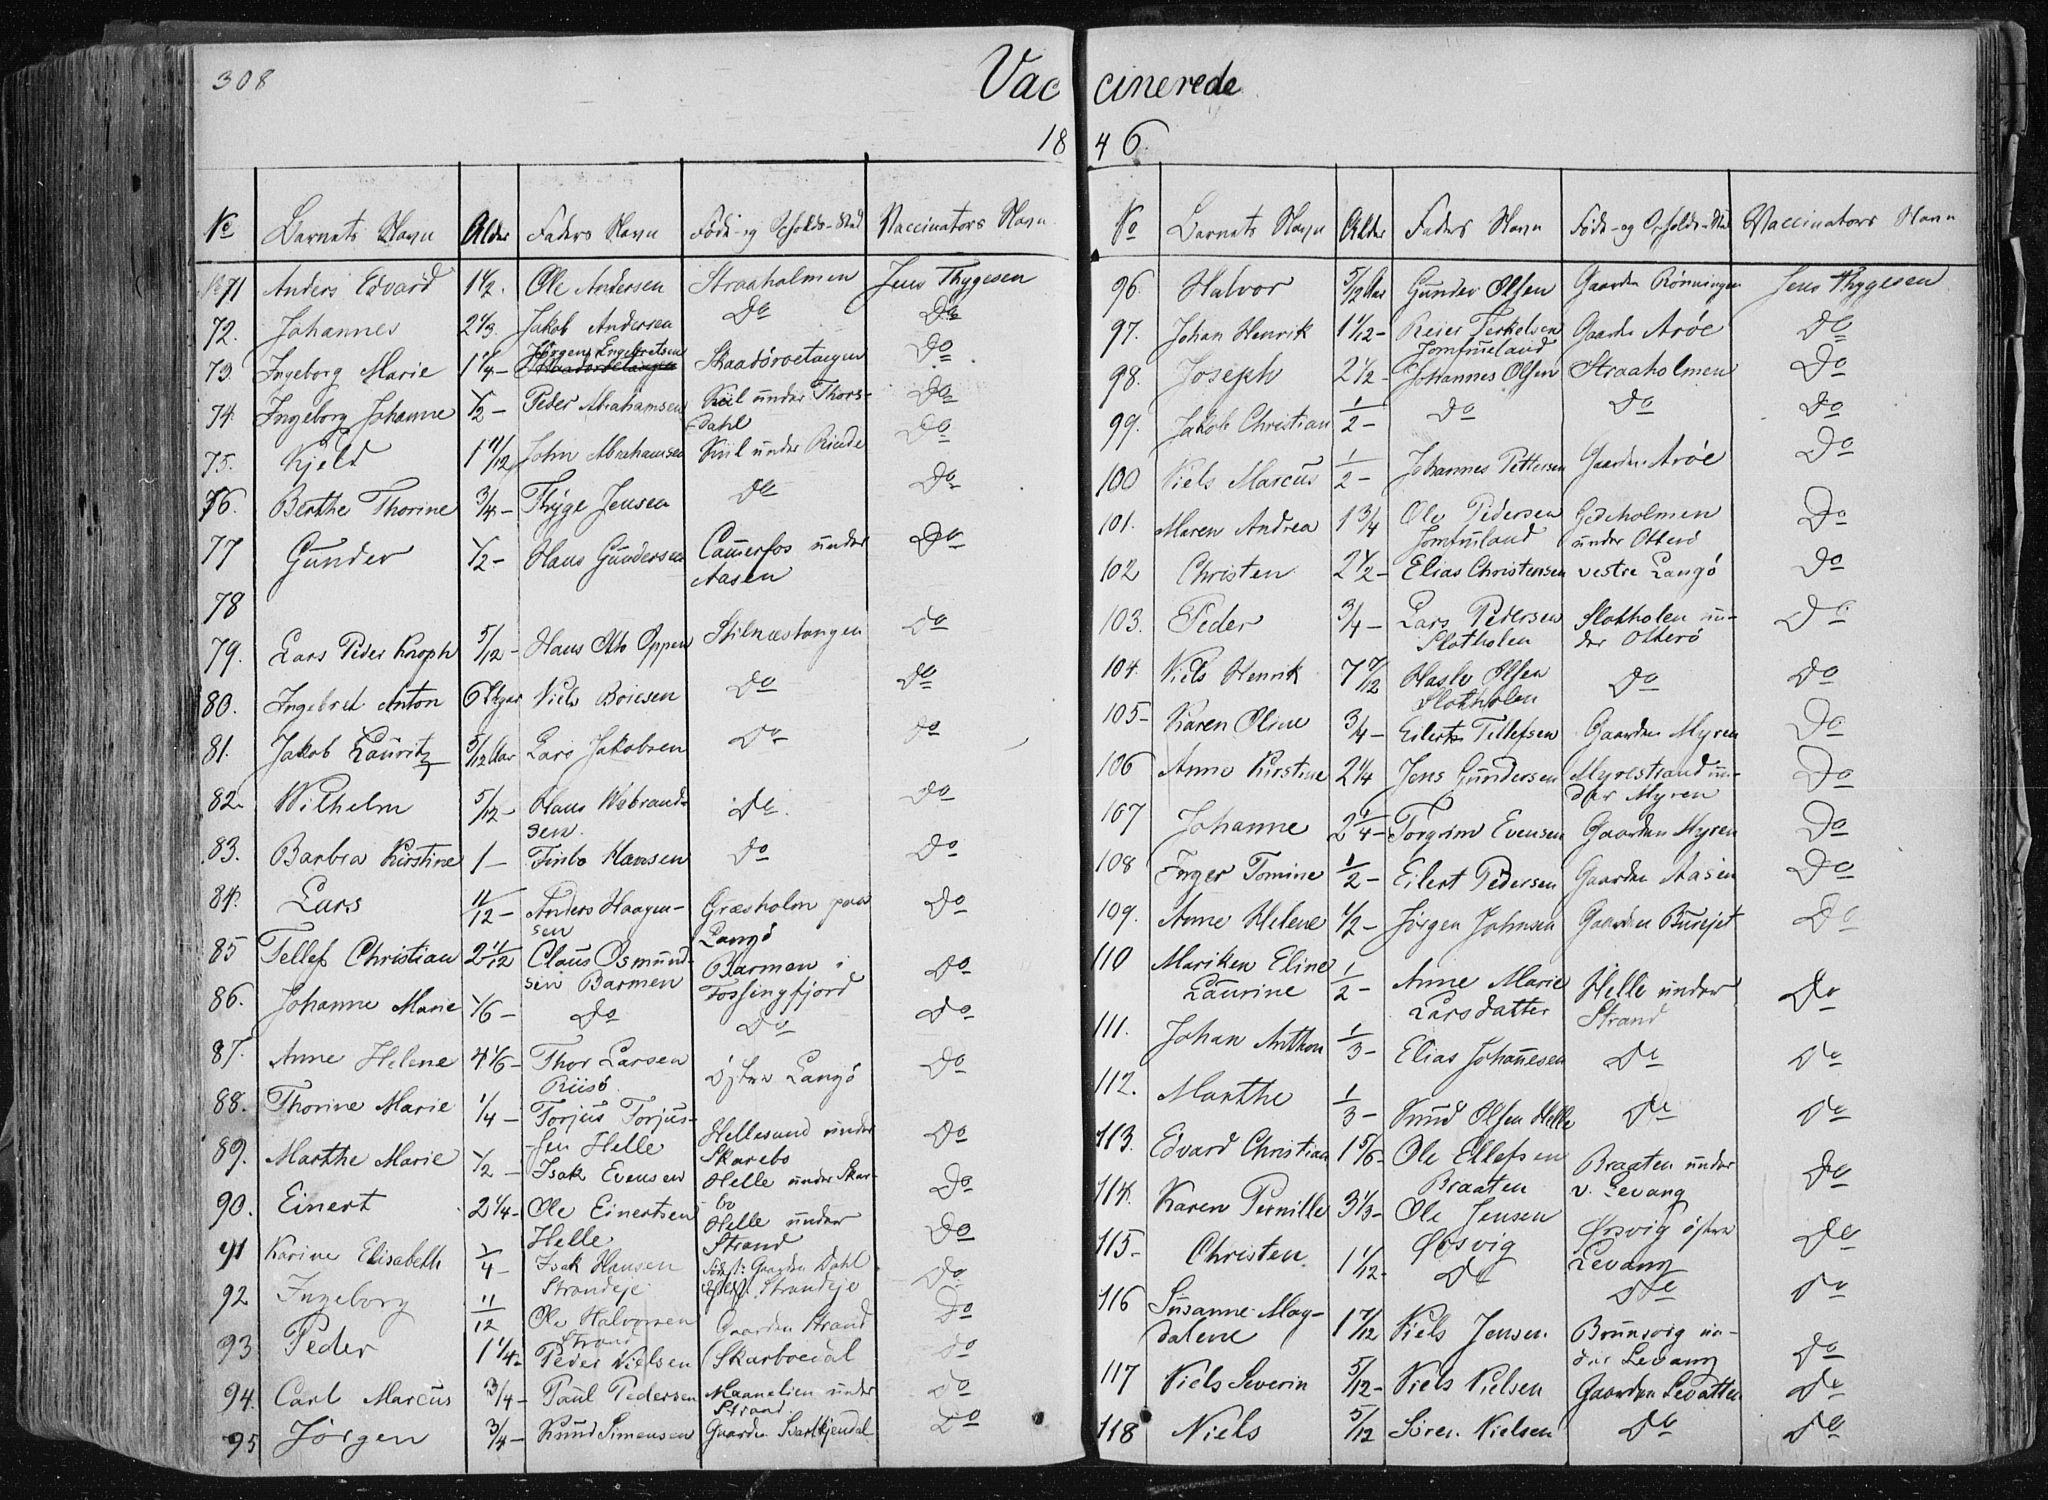 308
Vaccinerede
1846
No Barnets Navn Alder Faders Navn Føde- og Opholds-Sted Vaccinators Navn
71 Anders Edvard 1 1/2. Ole Andersen Straaholmen Jens Thygesen
72. Johannes 2 1/3 Jakob Andersen Do Do
73. Ingeborg Marie 1 1/4- Jørgen Engebretsen Skaadsroetangen Do
74. Ingeborg Johanne 1/2- Peder Abrahamsen Kiil under Thors-
dahl Do
75. Kjeld 1 11/12 John Abrahamsen Kiil under Rinde Do
76. Berthe Thorine 3/4- Thyge Jensen Do Do
77 Gunder 1/2- Hans Gundersen under
Aasen Do
78
79. Lars Peder Knoph 5/12- Hans Oppen Stilnæstangen Do
80. Ingebret Anton 6 Niels Boiesen Do Do
81. Jakob Lauritz 5/12 Aar Lars Jakobsen Do Do
82. Wilhelm 5/12- Hans Wibrand-
sen. Do. Do
83. Barbra Kirstine 1- Hansen Do Do
84. Lars 11/12- Anders Haagen-
sen Græsholm paa
Langö Do
85 Tellef Christian 2 1/12 Claus Osmund-
sen Barmen Barmen i
Fossingfjord Do
86. Johanne Marie 1/6- Do Do Do
87. Anne Helene 4 1/6- Thor Larsen
Riisö. Östre Langö Do
88. Thorine Marie 1/4- Torjus Torjus-
sen Helle Hellesund under
Skarebo Do
89. Marthe Marie 1/2- Isak Evensen Helle under Skar-
bo Do
90. Einert 2 1/4- Ole Einertsen
Helle Helle under
Strand Do
91 Karine Elisabeth 1/4 Isak Hansen
Strandeje Födest: Gaarden Dahl
Strandeje Do
92 Ingeborg 11/12 Ole Halvorsen
Strand Gaarden Strand Do
93 Peder 1 1/4- Peder Nielsen Skarboedal Do
94. Carl Marcus 3/4- Paul Pedersen Maanelien under
Strand Do
95 Jörgen 3/4- Knud Simensen Gaarden Do
No Barnets Navn Alder Faders Navn Føde- og Opholds-Sted Vaccinators Navn
96. Halvor 5/12 Aar Gunder Olsen Gaarden Rönningen Jens Thygesen
97. Johan Henrik 1 1/12- Reier Terkelsen
Jomfrueland Gaarden Aröe Do
98. Joseph 2 1/2- Johannes Olsen Straaholmen Do
99. Jakob Christian 1/2- Do Do Do
100 Niels Marcus 1/2- Johannes Pettersen Gaarden Aröe Do
101. Maren Andrea 1 3/4 Ole Pedersen
Jomfruland Gedeholmen
under Otterö Do
102 Christen 2 1/2- Elias Christensen vestre Langö Do
103. Peder 3/4- Lars Pedersen
Slotholen Slotholen un-
der Otterö Do
104. Niels Henrik 7 7/12 Olsen
Slotholen Do Do
105- Karen Oline 3/4- Eilert Tellefsen Gaarden Myren Do
106 Anne Kirstine 2 1/4 Jens Gundersen Myrestrand un-
der Myren Do
107 Johanne 2 1/4- Torgrim Evensen Gaarden Myren Do
108 Inger Tomine 1/2- Eilert Pedersen Gaarden Aasen Do
109. Anne Helene 1/2- Jörgen Johnsen Gaarden Burejet Do
110 Mariken Eline
Laurine 1/2- Anne Marie
Larsdatter Helle under
Strand Do
111. Johan Anthon 1/3- Elias Johanesen Do Do
112. Marthe 1/3- Knud Olsen Helle Do Do
113. Edvard Christian 1 5/6- Ole Ellefsen
Braaten Braaten under
v. Levang Do
114. Karen Pernille 3 1/3- Ole Jensen
Örsvig Örsvig östre
Levang Do
115- Christen 1 1/12- Do Do Do
116 Susanne Mag-
dalene 1 7/12 Niels Jensen Brunsvig un-
der Levang Do
117 Niels Severin 5/12- Niels Nielsen Gaarden Do
118 Niels 5/12 Sören Nielsen Do Do